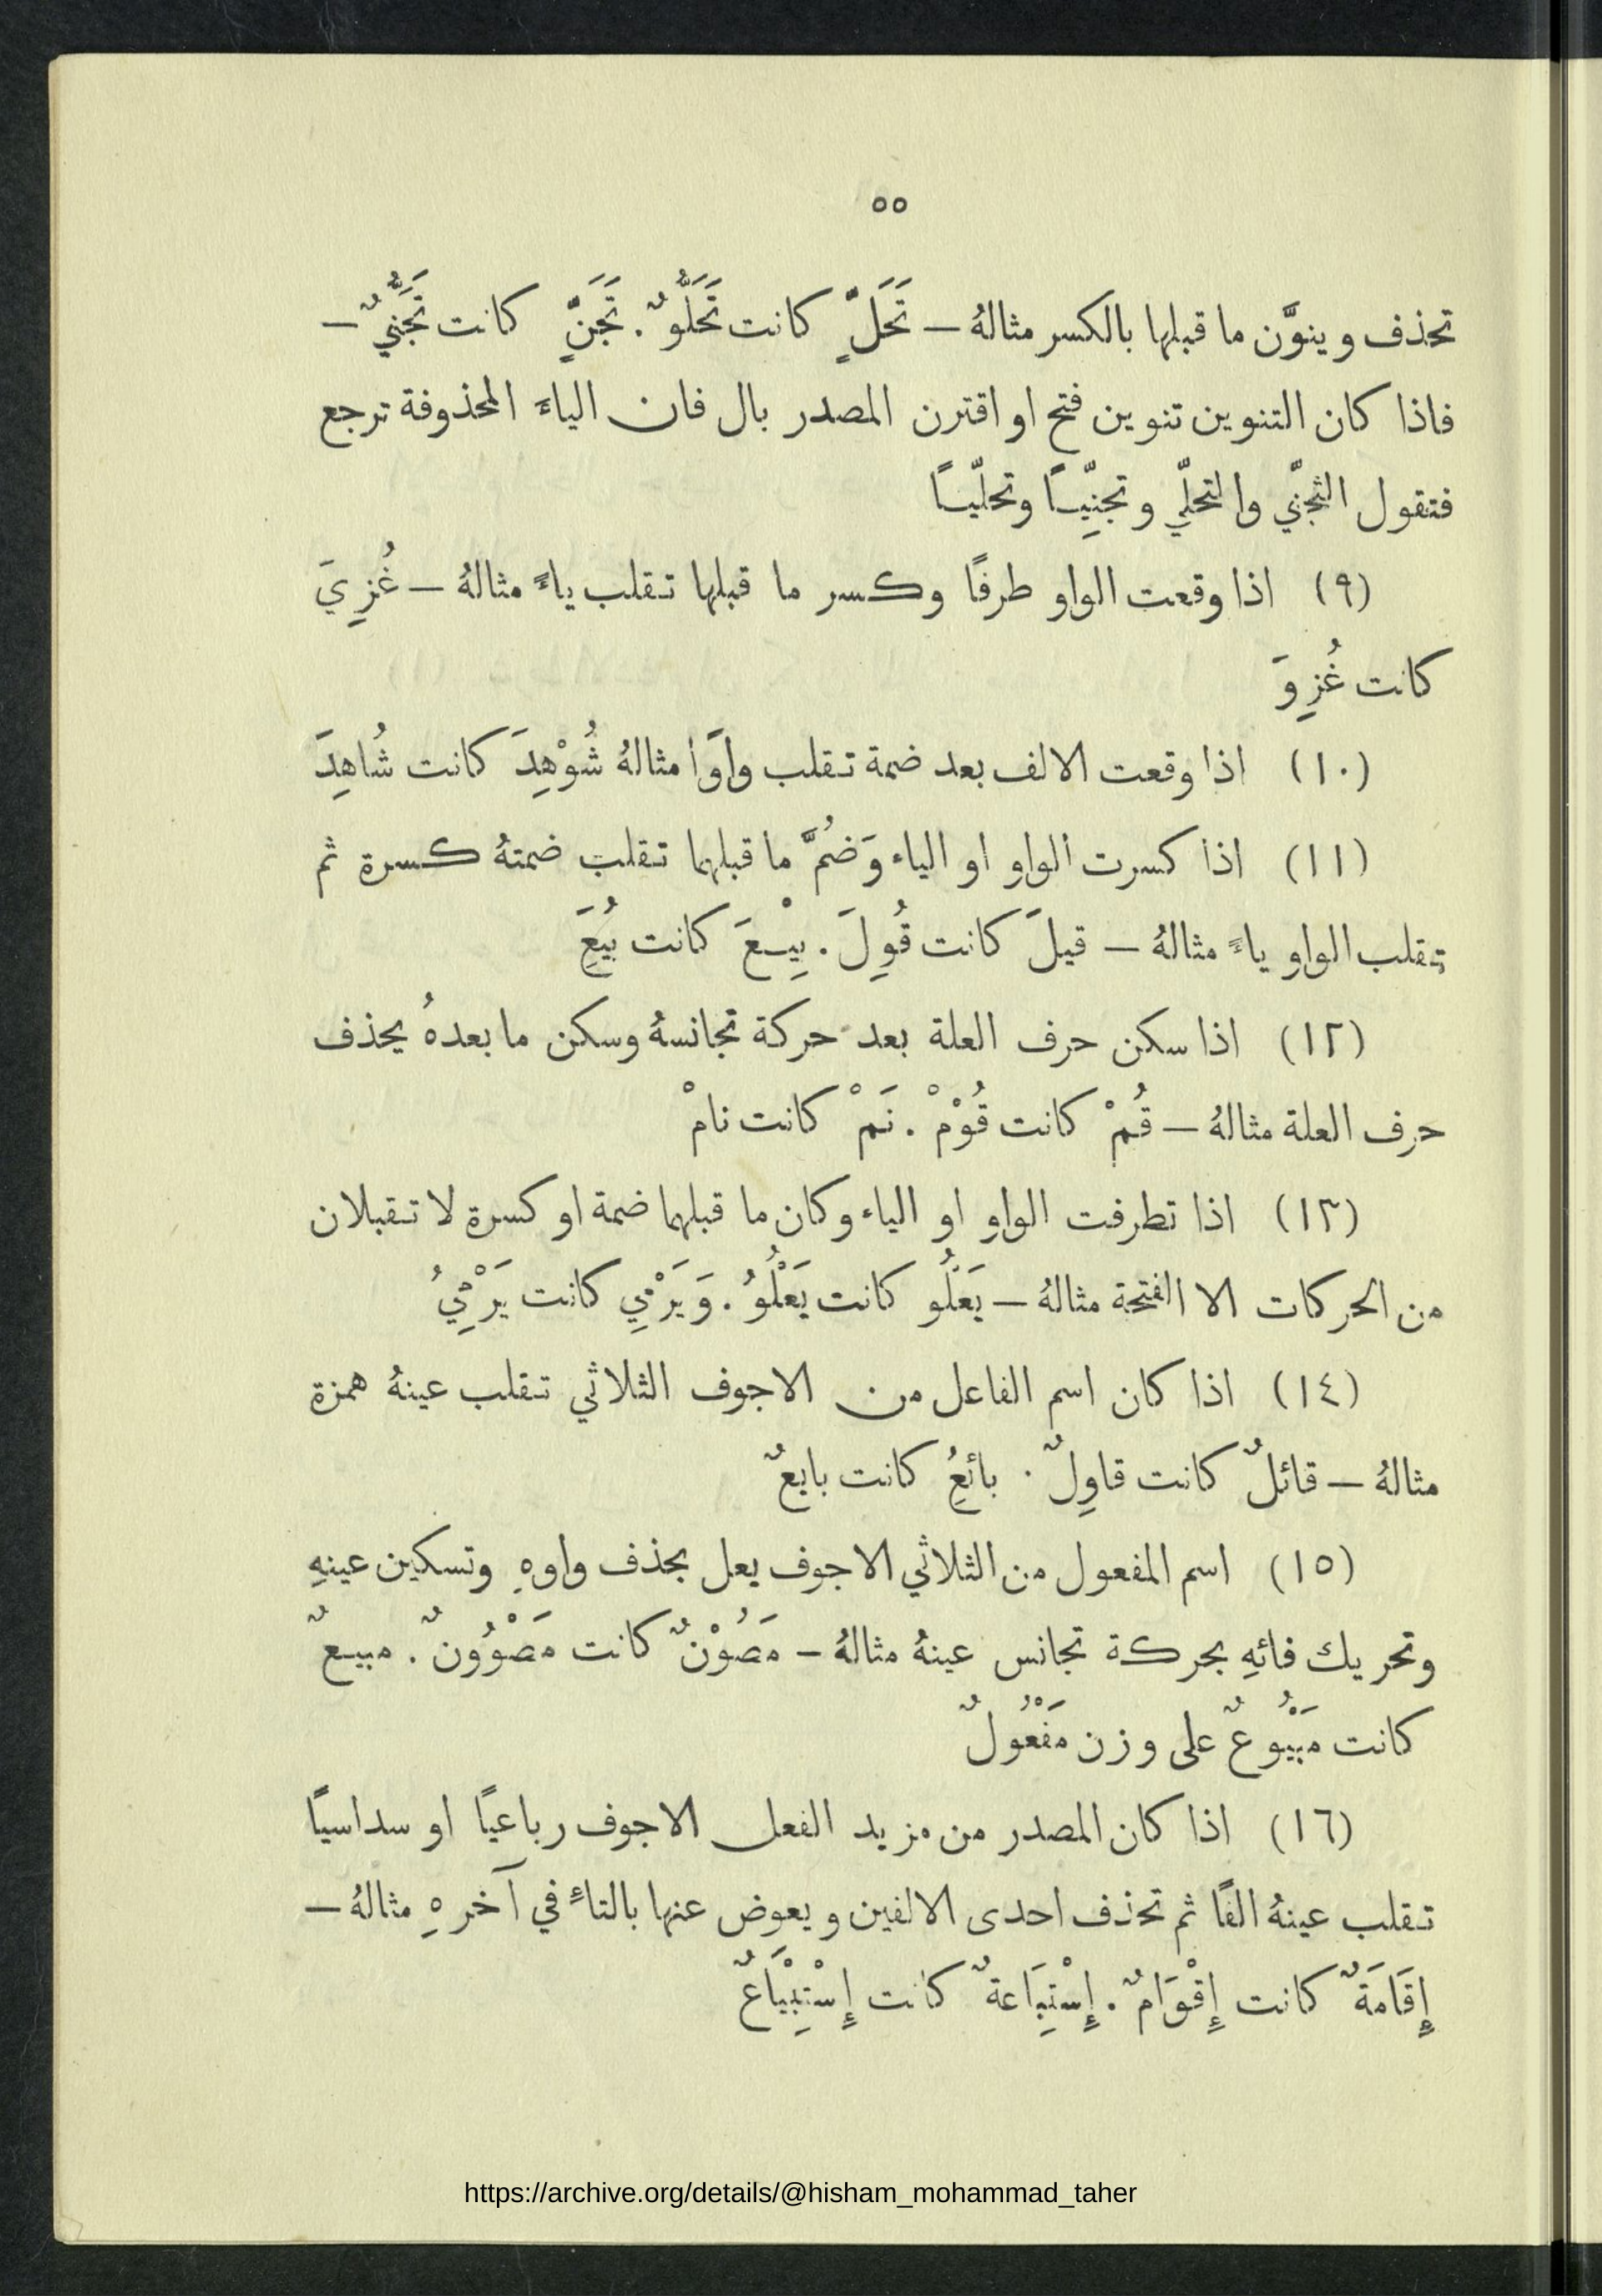 ٥٥
تحذف وينوَّن ما قبلها بالكسر مثالهُ — تَحَلٍّ كانت تَحَلُّوٌ. تَجَنٍّ كانت تَجَنُّيٌ —
فاذا كان التنوين تنوين فتح او اقترن المصدر بال فان الياءَ المحذوفة ترجع
فتقول التجنّي والتحلّي وتجنِّيـًا وتحلّيـًا
(٩) اذا وقعت الواو طرفًا وكسر ما قبلها تقلب ياءً مثالهُ — غُزِيَ
كانت غُزِوَ
(١٠) اذا وقعت الالف بعد ضمة تقلب واوًا مثالهُ شُوْهِدَ كانت شُاهِدَ
(١١) اذا كسرت الواو او الياء وَضُمَّ ما قبلهما تقلب ضمتهُ كسرة ثم
تقلب الواو ياءً مثالهُ — قيلَ كانت قُوِلَ. بِيْعَ كانت بُيِعَ
(١٢) اذا سكن حرف العلة بعد حركة تجانسهُ وسكن ما بعدهُ يحذف
حرف العلة مثالهُ — قُمْ كانت قُوْمْ. نَمْ كانت نامْ
(١٣) اذا تطرفت الواو او الياء وكان ما قبلهما ضمة او كسرة لا تقبلان
من الحركات الا الفتحة مثالهُ — يَعْلُو كانت يَعْلُوُ. وَيَرْمِي كانت يَرْمِيُ
(١٤) اذا كان اسم الفاعل من الاجوف الثلاثي تقلب عينهُ همزة
مثالهُ — قائلٌ كانت قاوِلٌ. بائعٌ كانت بايعٌ
(١٥) اسم المفعول من الثلاثي الاجوف يعل بحذف واوهِ وتسكين عينهِ
وتحريك فائهِ بحركة تجانس عينهُ مثالهُ — مَصُوْنٌ كانت مَصْوُونٌ. مبيعٌ
كانت مَبْيُوعٌ على وزن مَفْعُولٌ
(١٦) اذا كان المصدر من مزيد الفعل الاجوف رباعيًا او سداسيًا
تقلب عينهُ الفًا ثم تحذف احدى الالفين ويعوض عنها بالتاءِ في آخرهِ مثالهُ —
إِقَامَةٌ كانت إِقْوَامٌ. إِسْتِبَاعةٌ كانت إِسْتِبْيَاعٌ
https://archive.org/details/@hisham_mohammad_taher